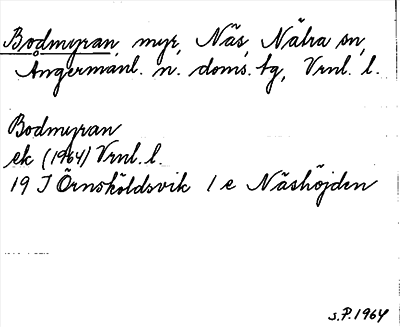 Bodmyran, myr, Näs, Nätra sn,
Ångermanl. n. doms. tg, Vrnl. l.
Bodmyran
ek (1964) Vrnl. l.
19 J Örnsköldsvik 1 e Näshöjden
s.P.1964